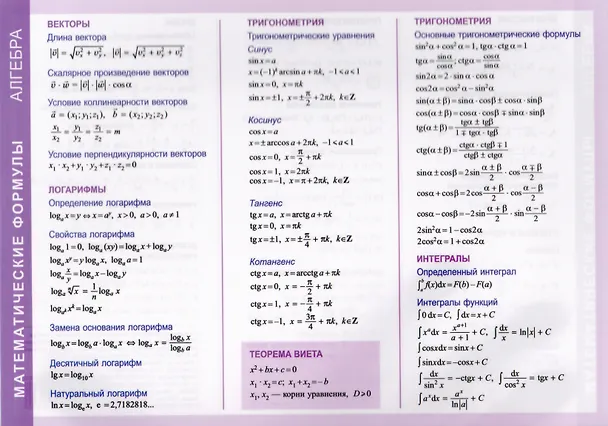 МАТЕМАТИЧЕСКИЕ ФОРМУЛЫ АЛГЕБРА
ВЕКТОРЫ
Длина вектора
|v̄| = √(vₓ² + vᵧ²), |v̄| = √(vₓ² + vᵧ² + v_z²)
Скалярное произведение векторов
v̄ · w̄ = |v̄| · |w̄| · cosα
Условие коллинеарности векторов
ā = (x₁; y₁; z₁), b̄ = (x₂; y₂; z₂)
x₁/x₂ = y₁/y₂ = z₁/z₂ = m
Условие перпендикулярности векторов
x₁ · x₂ + y₁ · y₂ + z₁ · z₂ = 0
ЛОГАРИФМЫ
Определение логарифма
logₐx = y ⇔ x = aʸ, x > 0, a > 0, a ≠ 1
Свойства логарифма
logₐ1 = 0, logₐ(xy) = logₐx + logₐy
logₐxʸ = y logₐx, logₐa = 1
logₐ x/y = logₐx − logₐy
logₐ ⁿ√x = 1/n logₐx
log_{aᵏ}xᵏ = logₐx
Замена основания логарифма
log_b x = log_b a · logₐx ⇔ logₐx = log_b x / log_b a
Десятичный логарифм
lgx = log₁₀x
Натуральный логарифм
lnx = logₑx, e = 2,7182818...
ТРИГОНОМЕТРИЯ
Тригонометрические уравнения
Синус
sinx = a
x = (−1)ᵏ arcsina + πk, −1 < a < 1
sinx = 0, x = πk
sinx = ±1, x = ± π/2 + 2πk, k∈Z
Косинус
cosx = a
x = ± arccosa + 2πk, −1 < a < 1
cosx = 0, x = π/2 + πk
cosx = 1, x = 2πk
cosx = −1, x = π + 2πk, k∈Z
Тангенс
tgx = a, x = arctga + πk
tgx = 0, x = πk
tgx = ±1, x = ± π/4 + πk, k∈Z
Котангенс
ctgx = a, x = arcctga + πk
ctgx = 0, x = − π/2 + πk
ctgx = 1, x = − π/4 + πk
ctgx = −1, x = 3π/4 + πk, k∈Z
ТЕОРЕМА ВИЕТА
x² + bx + c = 0
x₁ · x₂ = c; x₁ + x₂ = −b
x₁, x₂ — корни уравнения, D ≥ 0
ТРИГОНОМЕТРИЯ
Основные тригонометрические формулы
sin²α + cos²α = 1, tgα · ctgα = 1
tgα = sinα/cosα; ctgα = cosα/sinα
sin2α = 2 · sinα · cosα
cos2α = cos²α − sin²α
sin(α ± β) = sinα · cosβ ± cosα · sinβ
cos(α ± β) = cosα · cosβ ∓ sinα · sinβ
tg(α ± β) = (tgα ± tgβ)/(1 ∓ tgα · tgβ)
ctg(α ± β) = (ctgα · ctgβ ∓ 1)/(ctgβ ± ctgα)
sinα ± cosβ = 2 sin (α ± β)/2 · cos (α ∓ β)/2
cosα + cosβ = 2cos (α + β)/2 · cos (α − β)/2
cosα − cosβ = −2sin (α + β)/2 · sin (α − β)/2
2sin²α = 1 − cos2α
2cos²α = 1 + cos2α
ИНТЕГРАЛЫ
Определенный интеграл
∫ₐᵇ f(x)dx = F(b) − F(a)
Интегралы функций
∫0dx = C, ∫dx = x + C
∫xᵃdx = xᵃ⁺¹/(a + 1) + C, ∫dx/x = ln|x| + C
∫cosxdx = sinx + C
∫sinxdx = −cosx + C
∫dx/sin²x = −ctgx + C, ∫dx/cos²x = tgx + C
∫aˣdx = aˣ/ln|a| + C